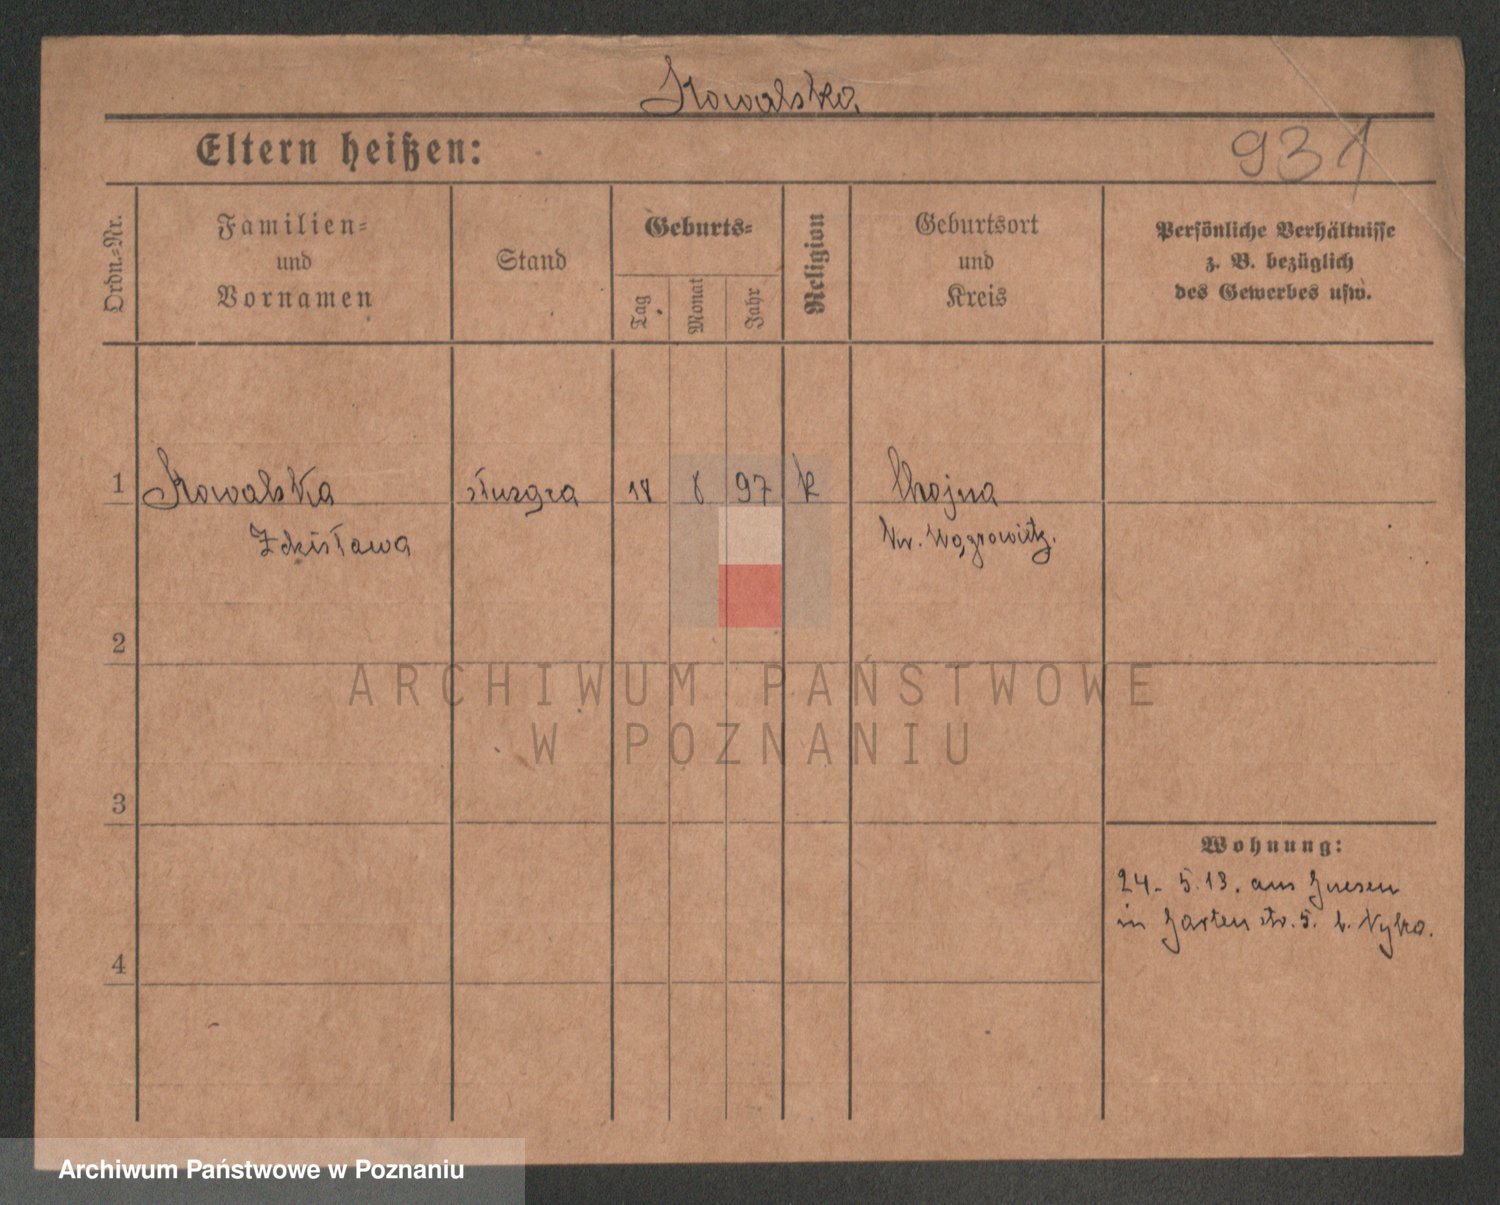 Kowalska
Eltern heißen:
931
Ordn.-Nr.
Familien-
und
Vornamen
Stand
Geburts-
Tag
Monat
Jahr
Religion
Geburtsort
und
Kreis
Persönliche Verhältnisse
z. B. bezüglich
des Gewerbes usw.
1 Kowalska 97 k Chojna
Zdzisława
2
3
4
Wohnung:
24. 5. 13. aus Gnesen
in Gartenstr. 5. b.
ARCHIWUM PAŃSTWOWE
W POZNANIU
Archiwum Państwowe w Poznaniu